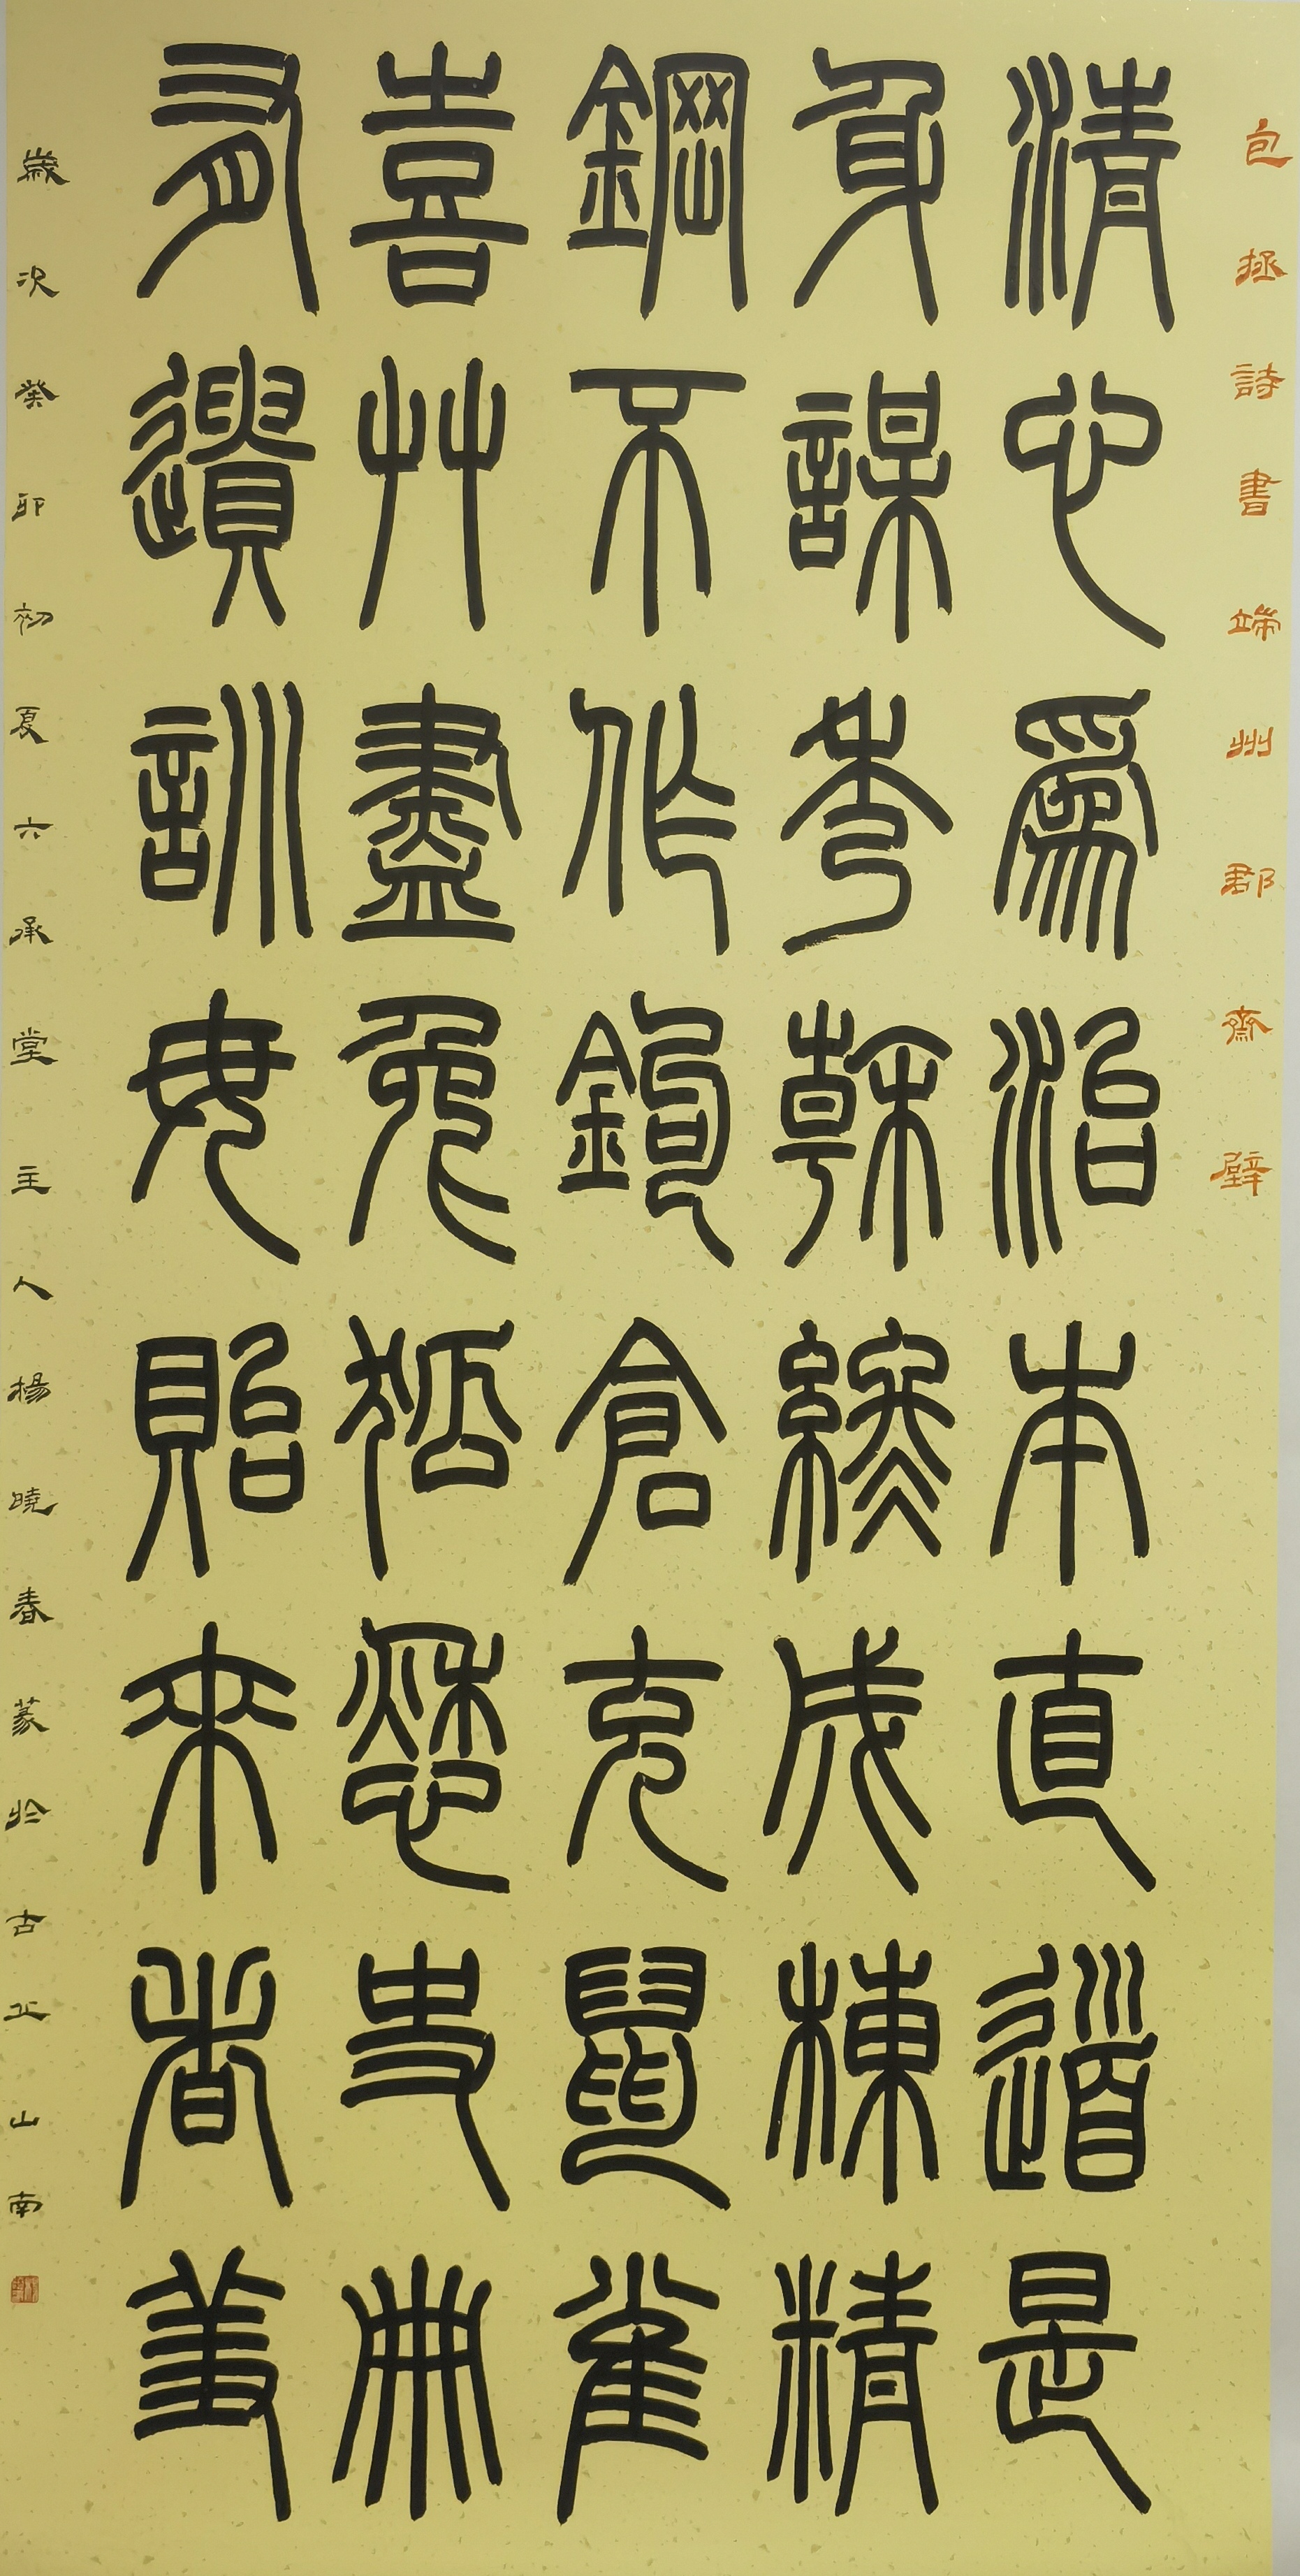 包拯詩書端州郡齋壁
清心爲治本直道是
身謀秀榦終成棟精
鋼不作鉤倉充鼠雀
喜艸盡兔狐愁史冊
有遺訓毋貽來者羞
歲次癸卯初夏六承堂主人楊曉春篆於古止山南